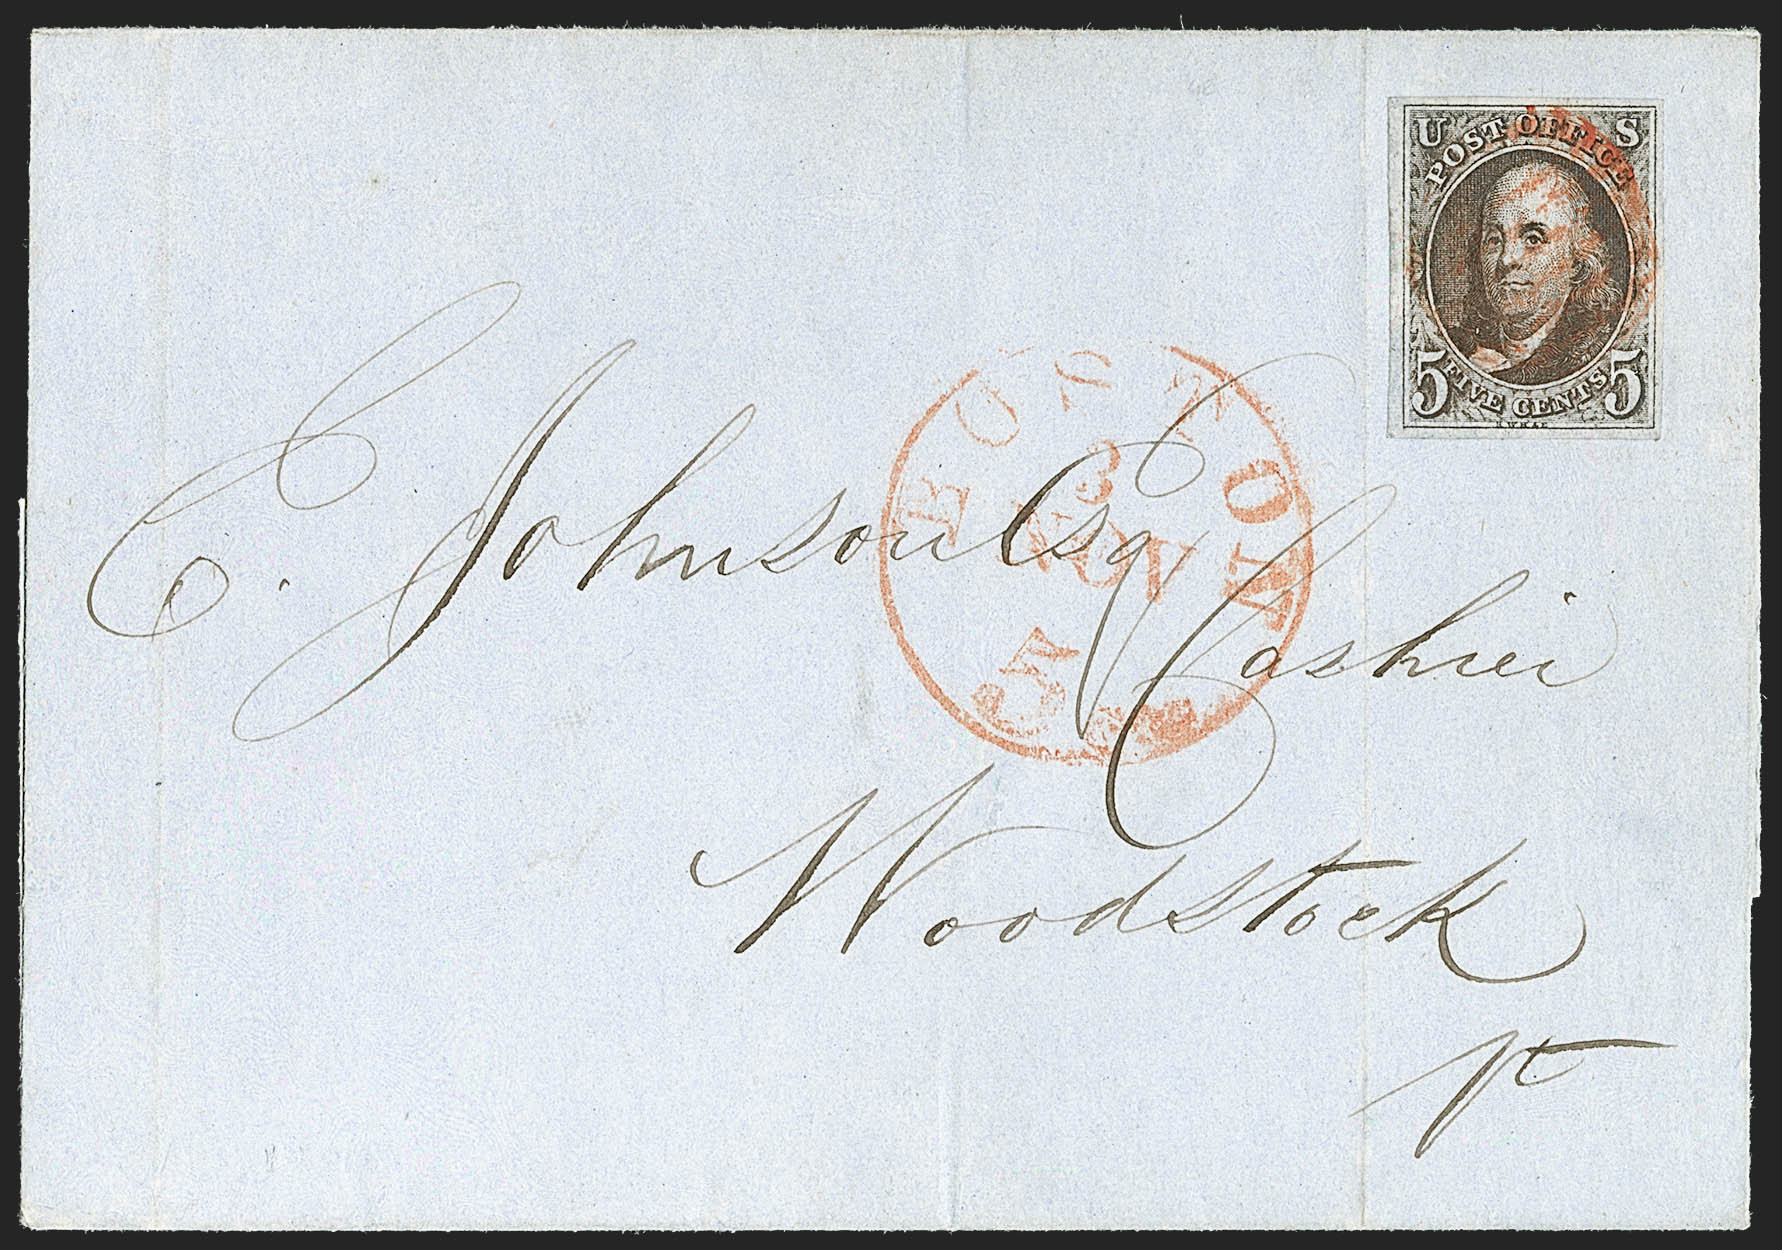 U S
POST OFFICE
5 FIVE CENTS 5
BOSTON
3
NOV
5 cts
E. Johnson Esq
Cashier
Woodstock
Vt